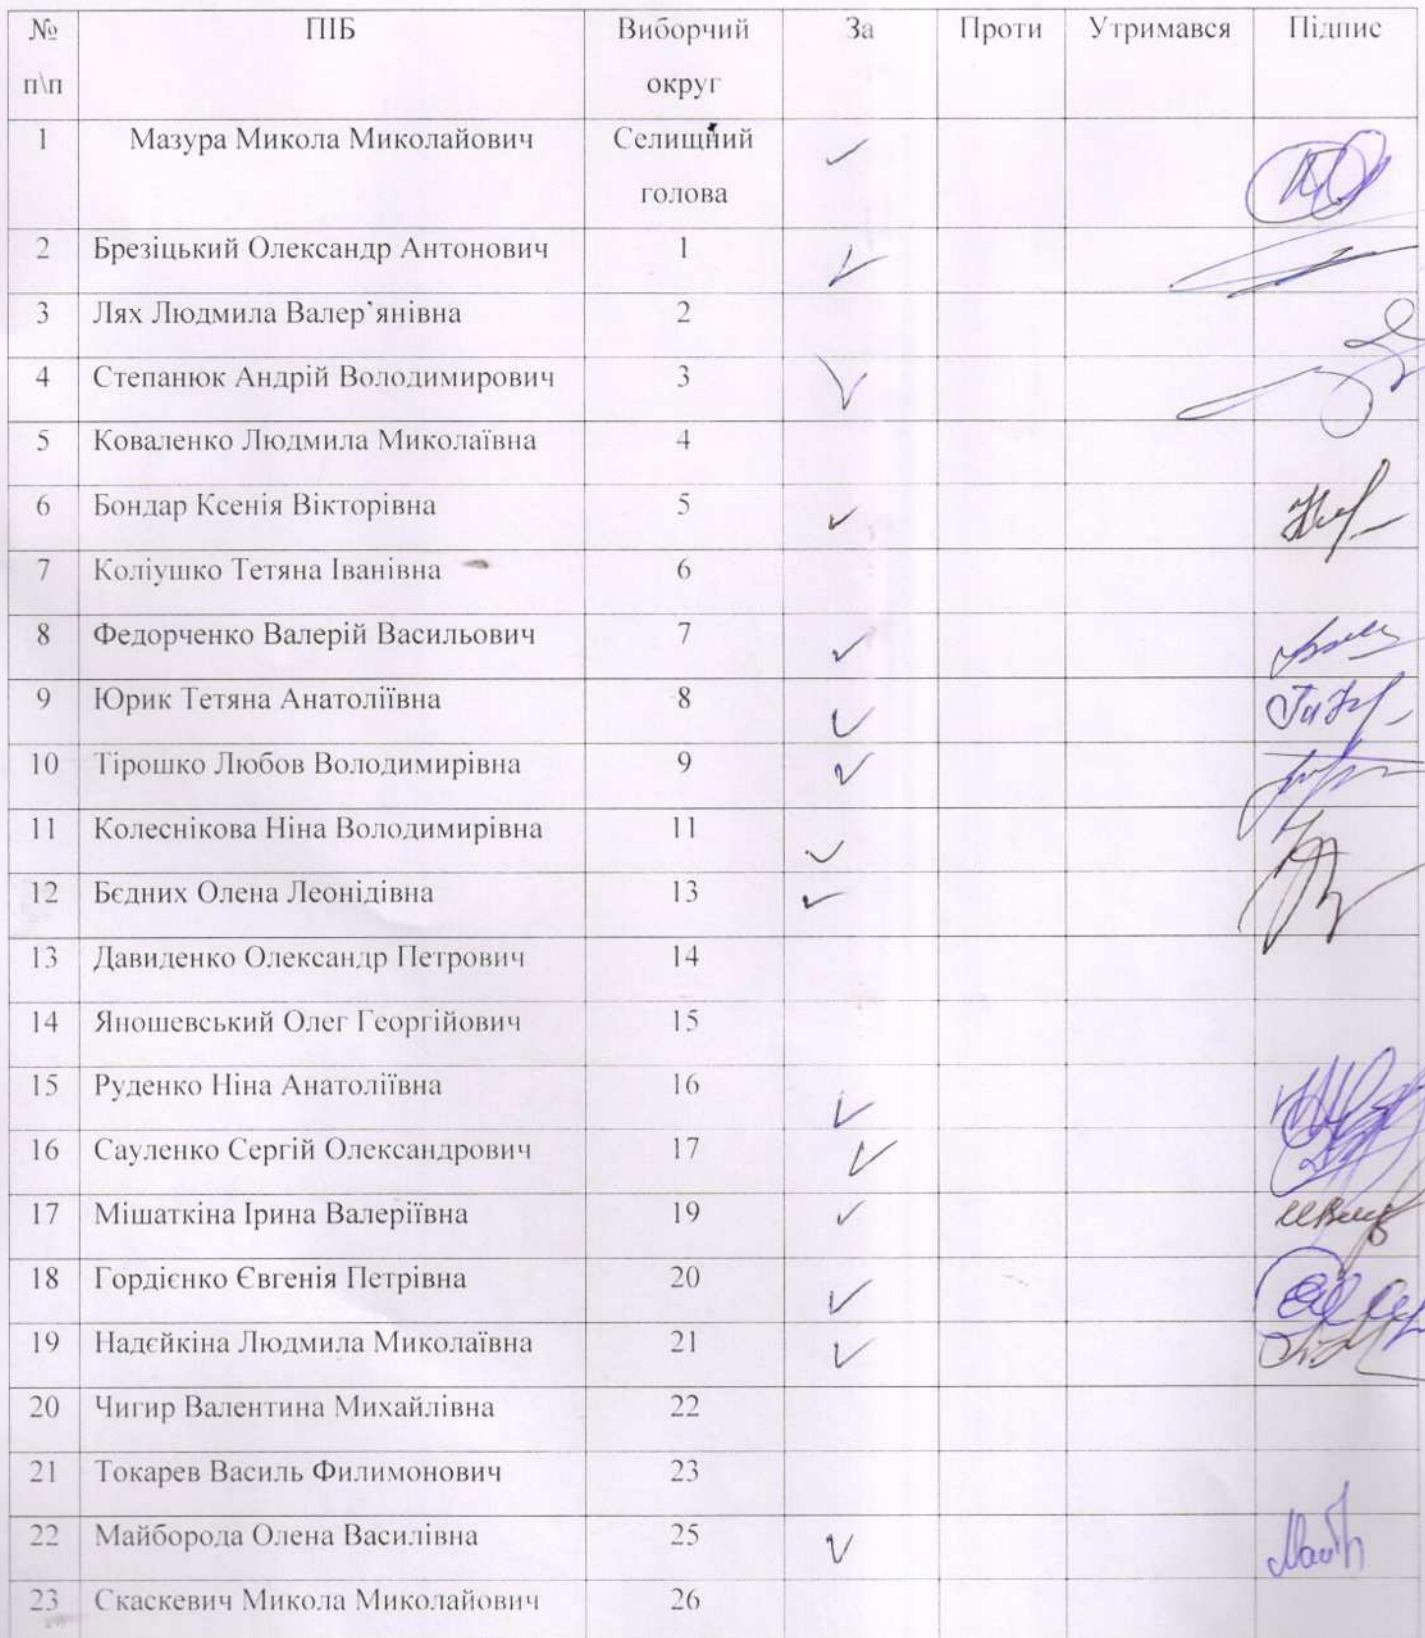 № ПІБ Виборчий За Проти Утримався Підпис
п\п округ
1 Мазура Микола Миколайович Селищний
голова
2 Брезіцький Олександр Антонович 1
3 Лях Людмила Валер’янівна 2
4 Степанюк Андрій Володимирович 3
5 Коваленко Людмила Миколаївна 4
6 Бондар Ксенія Вікторівна 5
7 Коліушко Тетяна Іванівна 6
8 Федорченко Валерій Васильович 7
9 Юрик Тетяна Анатоліївна 8
10 Тірошко Любов Володимирівна 9
11 Колеснікова Ніна Володимирівна 11
12 Бєдних Олена Леонідівна 13
13 Давиденко Олександр Петрович 14
14 Яношевський Олег Георгійович 15
15 Руденко Ніна Анатоліївна 16
16 Сауленко Сергій Олександрович 17
17 Мішаткіна Ірина Валеріївна 19
18 Гордієнко Євгенія Петрівна 20
19 Надєйкіна Людмила Миколаївна 21
20 Чигир Валентина Михайлівна 22
21 Токарев Василь Филимонович 23
22 Майборода Олена Василівна 25
23 Скаскевич Микола Миколайович 26